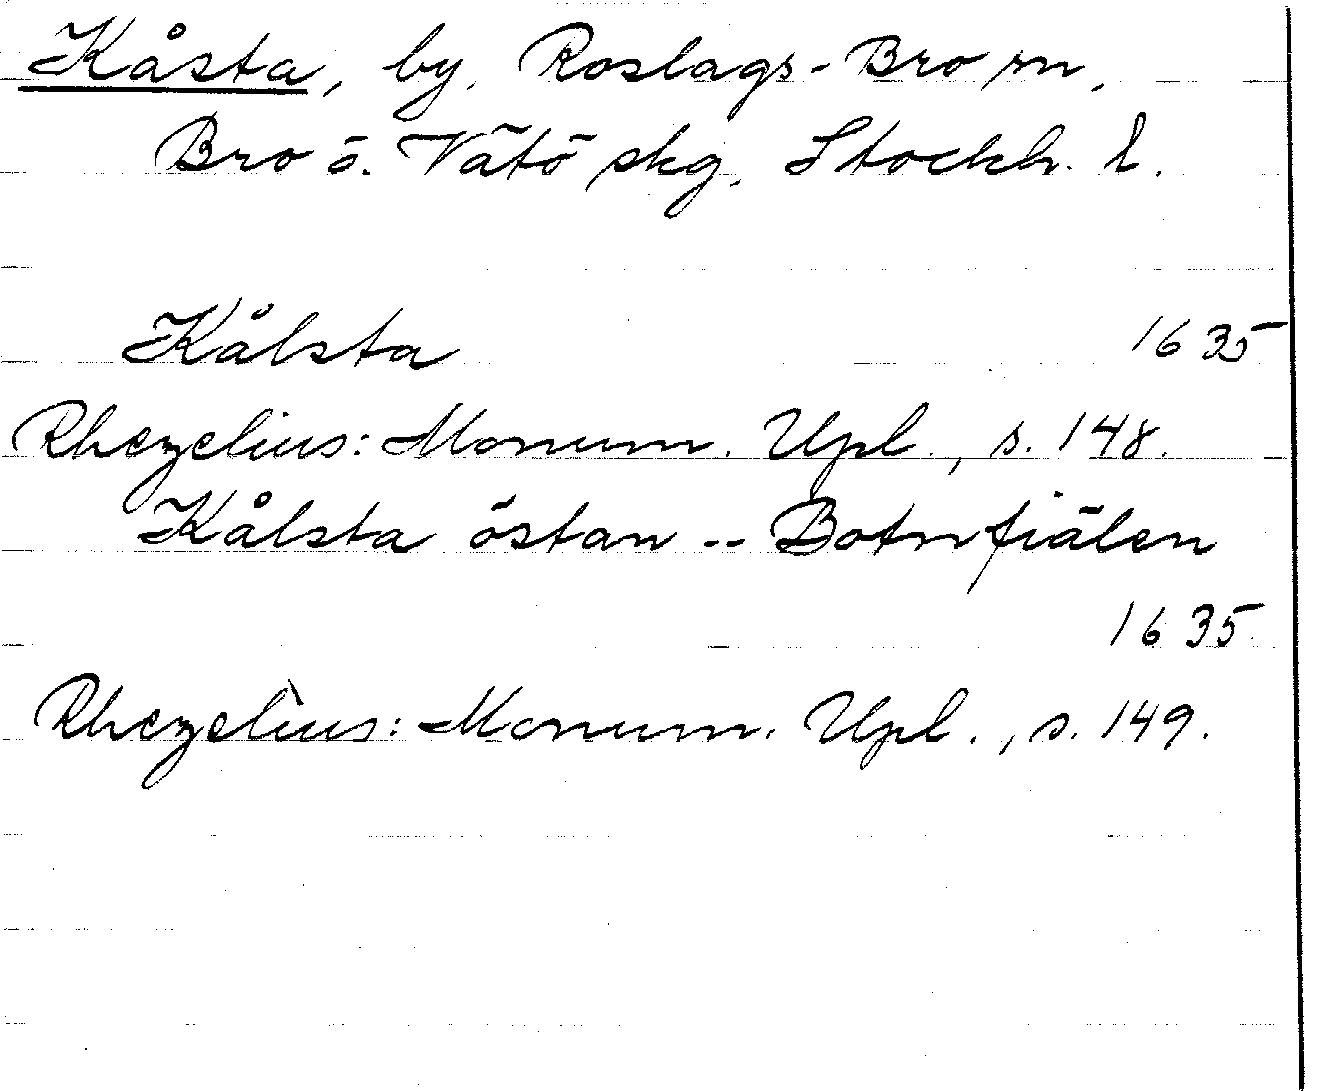 Kåsta, by, Roslags-Bro sn,
Bro o. Vätö skg, Stockh. l.
Kålsta 1635
Rhezelius: Monum. Upl., s. 148.
Kålsta östan -- Botnfiälen
1635
Rhezelius: Monum. Upl., s. 149.